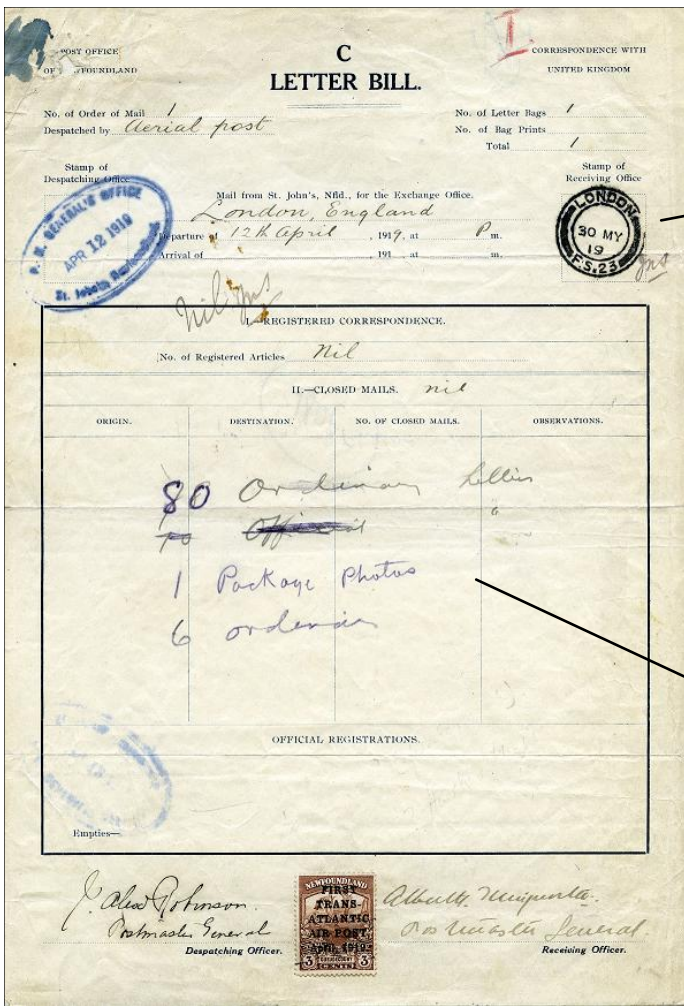 C
LETTER BILL.
POST OFFICE
OF NEWFOUNDLAND
I.
CORRESPONDENCE WITH
UNITED KINGDOM
No. of Order of Mail 1
Despatched by Aerial post
No. of Letter Bags 1
No. of Bag Prints
Total 1
Stamp of
Despatching Office
Stamp of
Receiving Office
P. M. GENERAL'S OFFICE
APR 12 1919
St. John's Newfoundland
Mail from St. John's, Nfld., for the Exchange Office.
London, England
Departure of 12th April, 1919, at P m.
Arrival of , 191 , at m.
LONDON
30 MY
19
F.S.23
Nil
I.—REGISTERED CORRESPONDENCE.
No. of Registered Articles Nil
II.—CLOSED MAILS. nil
ORIGIN. DESTINATION. NO. OF CLOSED MAILS. OBSERVATIONS.
80 Ordinary Letters
10 Official "
1 Package Photos
6 ordinary
OFFICIAL REGISTRATIONS.
Empties—
J. Alex Robinson.
Postmaster General
Despatching Officer.
NEWFOUNDLAND
FIRST
TRANS-
ATLANTIC
AIR POST
April, 1919.
3 CENTS 3
Postmaster General
Receiving Officer.